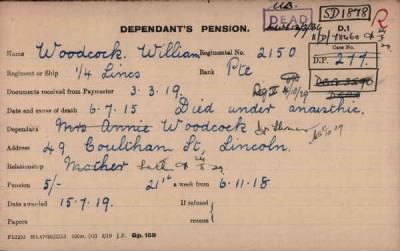 DEPENDANT'S PENSION.
DEAD
SD1878
R
D.1
Name Woodcock. William Regimental No. 2150
Case No.
Regiment or Ship 1/4 Lincs Rank Pte
D.P. 277.
Documents received from Paymaster 3. 3. 19.
Date and cause of death 6.7.15 Died under anaesthic.
Dependant Mrs Annie Woodcock
Address 49 Coultham St, Lincoln.
Relationship Mother
Pension 5/- 21st a week from 6.11.18
Date 15.7.19. If refused
Papers reason
Gp. 159